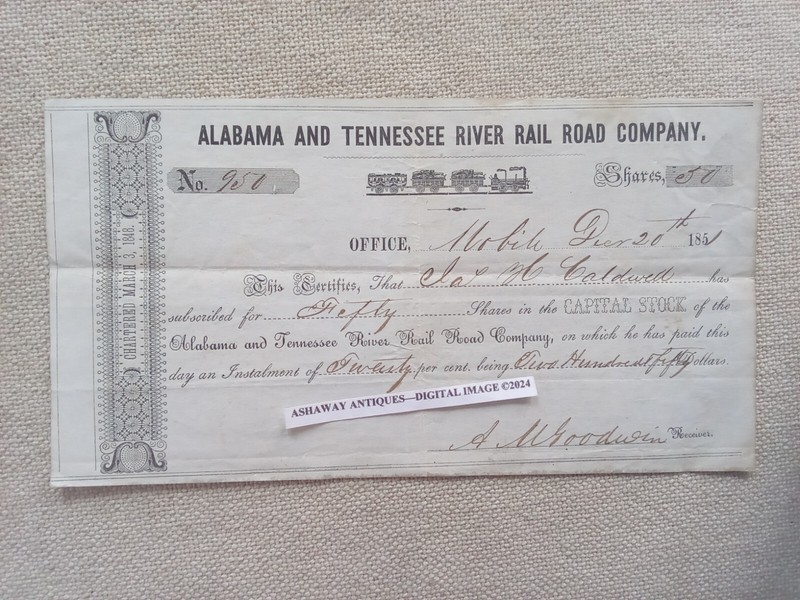 ALABAMA AND TENNESSEE RIVER RAIL ROAD COMPANY.
No. 950 Shares, 50
OFFICE, Mobile Decr 20th 1851
This Certifies, That Jas H Caldwell has
subscribed for Fifty Shares in the CAPITAL STOCK of the
Alabama and Tennessee River Rail Road Company, on which he has paid this
day an Instalment of Twenty per cent. being Two Hundred & fifty Dollars.
A M Goodwin Receiver.
CHARTERED MARCH 3, 1848.
ASHAWAY ANTIQUES—DIGITAL IMAGE ©2024